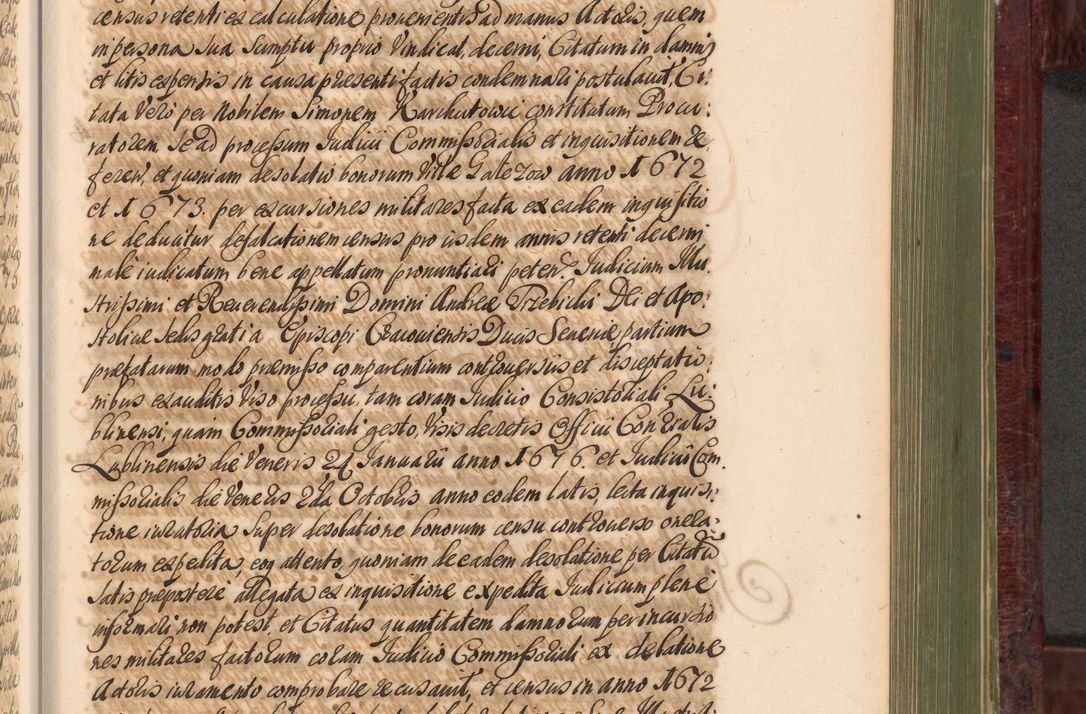 census retenti ex calculatione provenientis ad manus Actoris, quem
in persona sua sumptu proprio vindicat, decerni, Citatum in damnis
et litis expensis in causa præsenti factis condemnari postulavit, Ci:
tata vero per Nobilem Simonem constitutum Procu:
ratorem, se ad processum Iudicii Commissorialis et inquisitionem re,
feren, et quoniam desolatio bonorum Villæ anno 1672
et 1673. per excursiones militares facta ex eadem inquisitio
ne deducitur defalcationem census pro iisdem annis retenti decerni
male iudicatum bene appellatum pronuntiari peten. Iudicium Illu.
strissimi et Reverendissimi Domini Andreæ Trzebicki Dei et Apo:
stolicæ sedis gratia Episcopi Cracoviensis Ducis Severiæ partium
præfatarum modo præmisso comparentium controversiis et disceptatio:
nibus exauditis viso processu, tam coram Iudicio Consistoriali Lu:
blinensi, quam Commissoriali gesto, visis decretis Officii Conralis
Lublinensis die Veneris 24 Ianuarii anno 1676. et Iudicii Com.
missorialis die Veneris 2da Octobris anno eodem latis, lecta inquisi:
tione iuratoria super desolatione bonorum censu controverso onera:
torum expedita, eoq attento, quoniam de eadem desolatione per Citatū
satis præpostere allegata ex inquisitione expedita Iudicium plene
informari non potest, et Citatus quantitatem damnorum per incursio
nes militares factorum coram Iudicio Commissoriali ex delatione
Actoris iuramento comprobare recusavit, et census in anno 1672